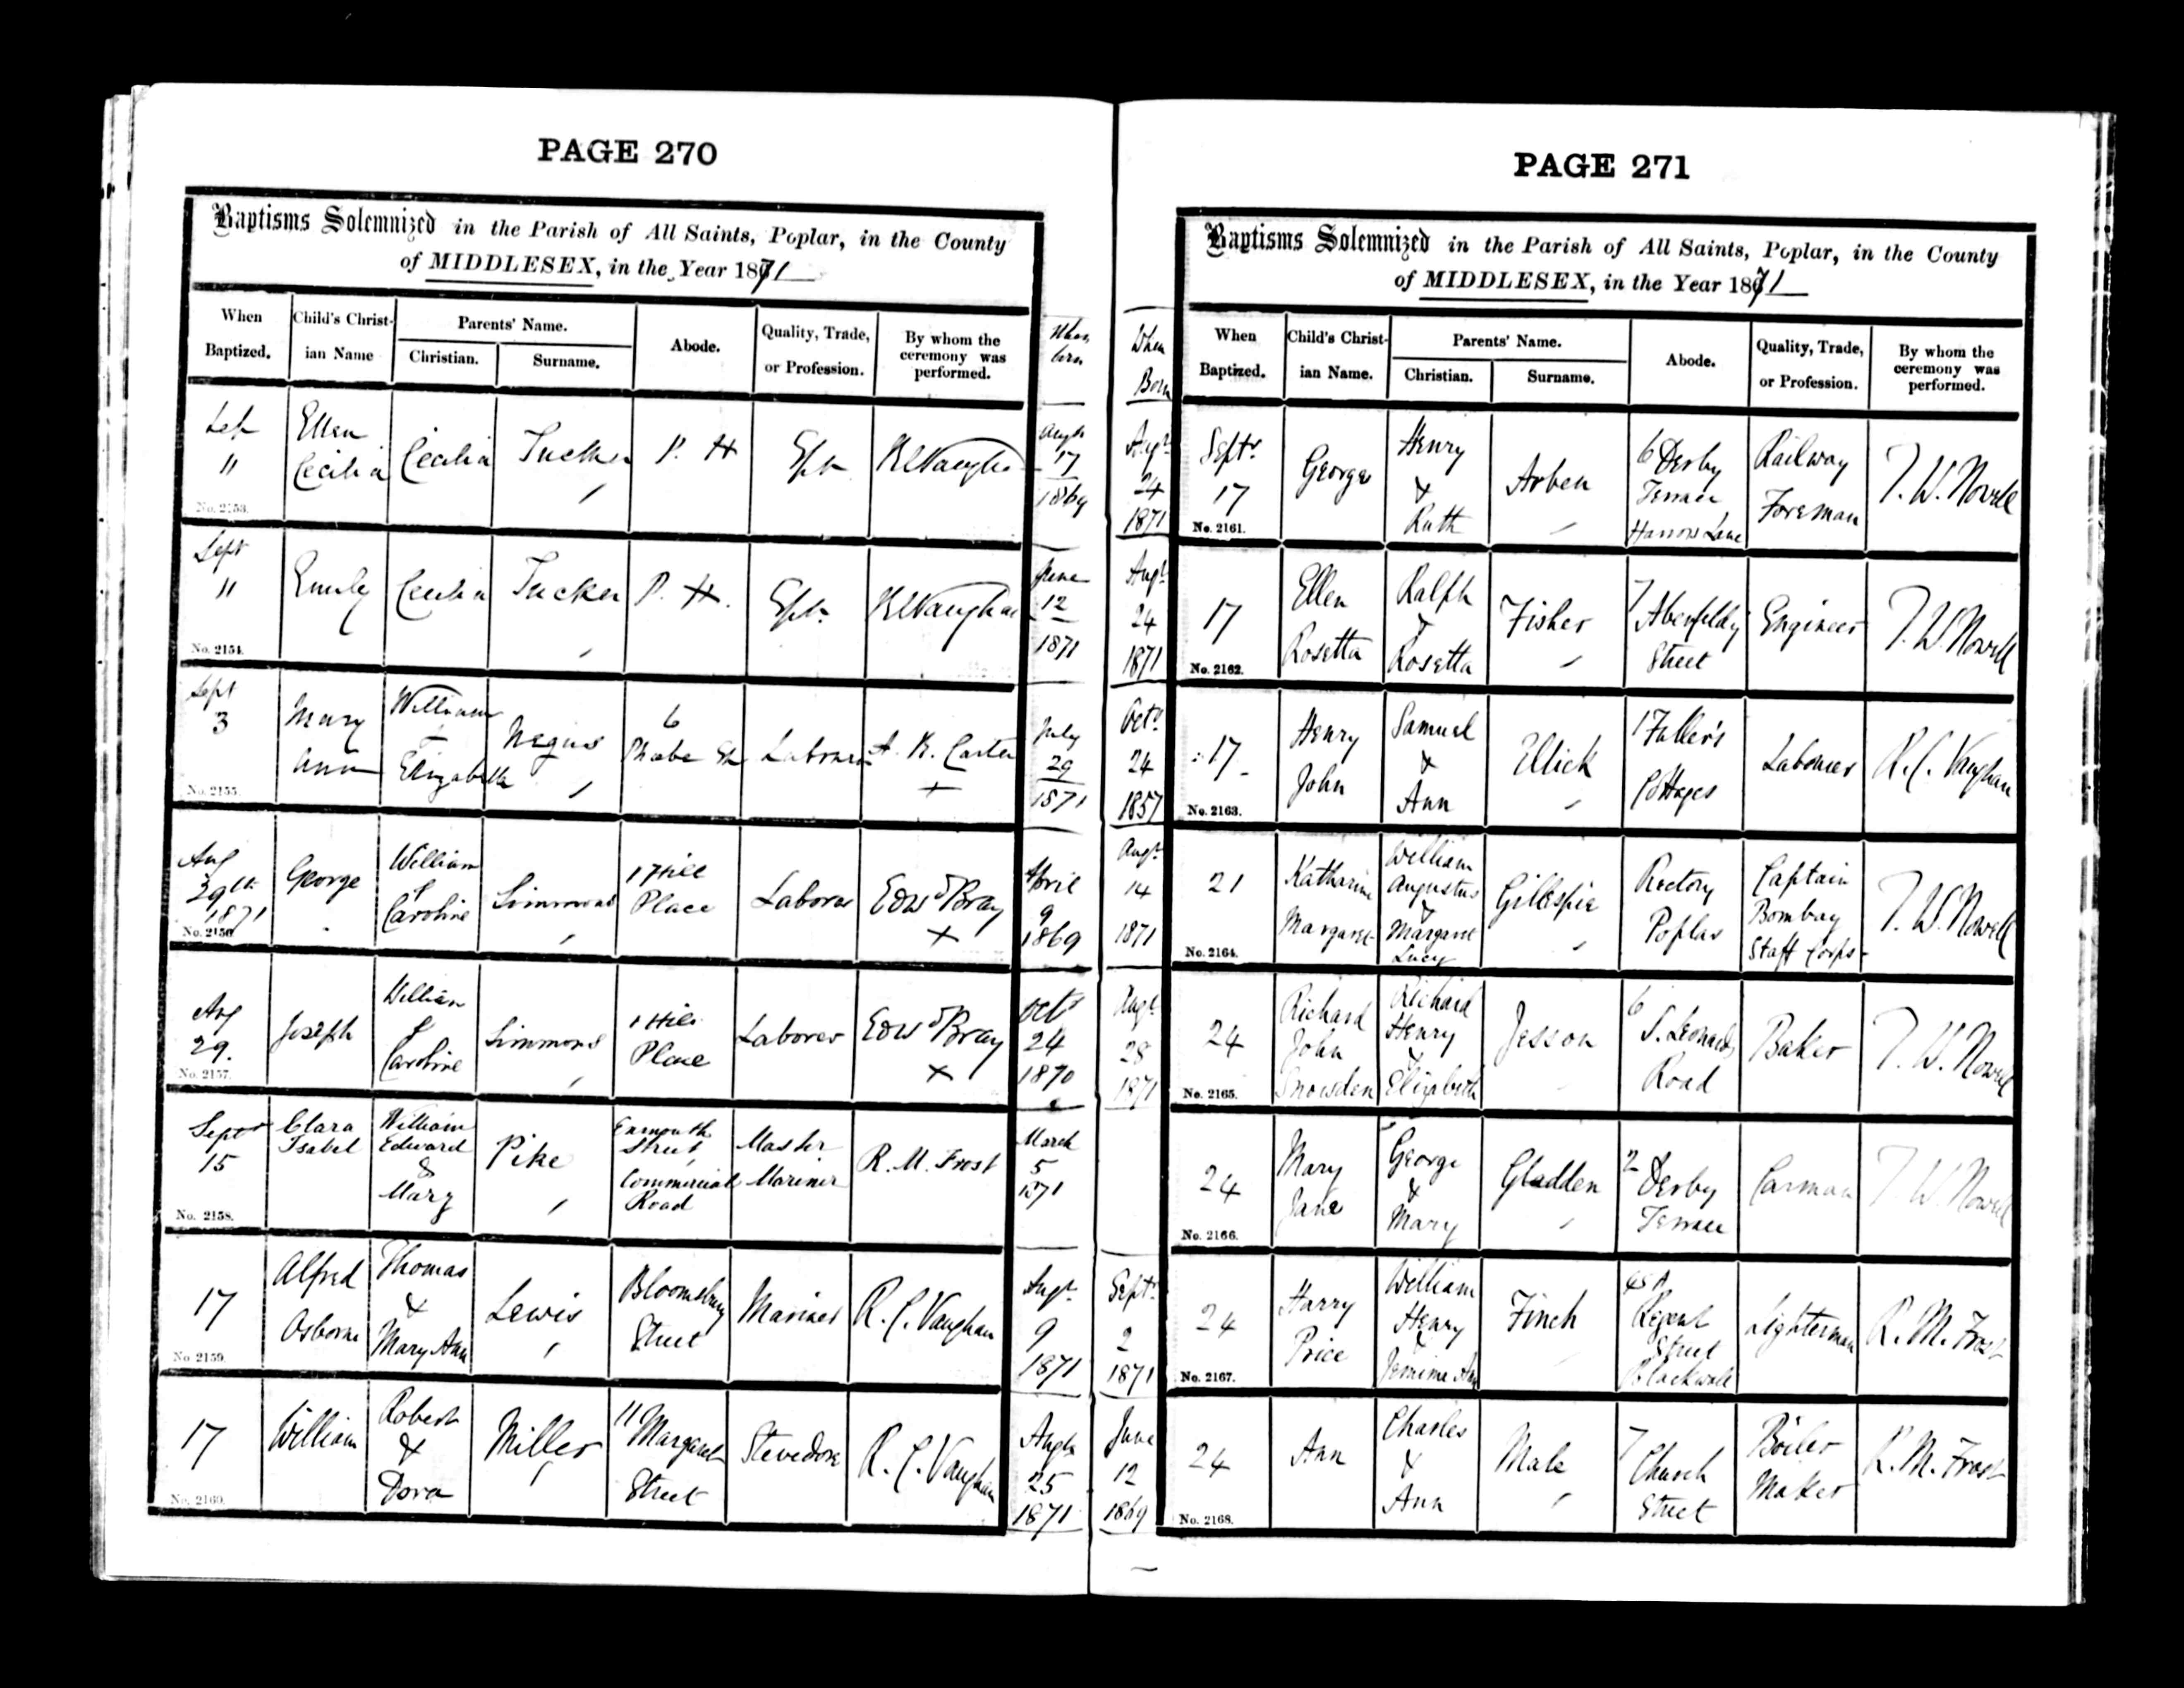 PAGE 270
Baptisms Solemnized in the Parish of All Saints, Poplar, in the County
of MIDDLESEX, in the Year 1871
When Baptized. Child's Christian Name Parents' Name. Christian. Surname. Abode. Quality, Trade, or Profession. By whom the ceremony was performed. When born
11 Ellen Cecilia Cecilia Tucker P. H 17 1869
No. 2153.
Sept 11 Emily Cecilia Tucker P. H. June 12 1871
No. 2154.
Sept 3 Mary Ann William Elizabeth Negus 6 Phoebe St A. R. Carter July 29 1871
No. 2155.
Aug 29th 1871 George William & Caroline Simmons 1 Hill Place Laborer Edwd Bray April 9 1869
No. 2156.
Aug 29. Joseph William & Caroline Simmons 1 Hill Place Laborer Edwd Bray Octr 24 1870
No. 2157.
Septr 15 Clara Isabel William Edward & Mary Pike Street, Commercial Road Master Mariner R. M. Frost March 5 1871
No. 2158.
17 Alfred Osborne Thomas & Mary Ann Lewis Bloomsbury Street Mariner R. C. Vaughan Augt. 9 1871
No. 2159.
17 William Robert & Dora Miller 11 Margaret Street Stevedore R. C. Vaughan Augt 25 1871
No. 2160.
PAGE 271
Baptisms Solemnized in the Parish of All Saints, Poplar, in the County
of MIDDLESEX, in the Year 1871
When Born When Baptized. Child's Christian Name. Parents' Name. Christian. Surname. Abode. Quality, Trade, or Profession. By whom the ceremony was performed.
Augt 24 1871 Septr. 17 George Henry & Ruth Arben 6 Derby Terrace Harrow Lane Railway Foreman T. W. Nowell
No. 2161.
Augt 24 1871 17 Ellen Rosetta Ralph & Rosetta Fisher 7 Aberfeldy Street Engineer T. W. Nowell
No. 2162.
Octr 24 1857 17 Henry John Samuel & Ann Ellick 1 Fuller's Cottages Labourer R. C. Vaughan
No. 2163.
Augt. 14 1871 21 Katharine Margaret William Augustus & Margaret Lucy Gillespie Rectory Poplar Captain Bombay Staff Corps T. W. Nowell
No. 2164.
Augt. 28 1871 24 Richard John Snowden Richard Henry & Elizabeth Jesson 6 S. Leonards Road Baker T. W. Nowell
No. 2165.
24 Mary Jane George & Mary Gladden 2 Derby Terrace Carman T. W. Nowell
No. 2166.
Septr. 2 1871 24 Harry Price William Henry & Finch Regent Street Blackwall Lighterman R. M. Frost
No. 2167.
June 12 1869 24 Ann Charles & Ann Male 7 Church Street Boiler Maker R. M. Frost
No. 2168.